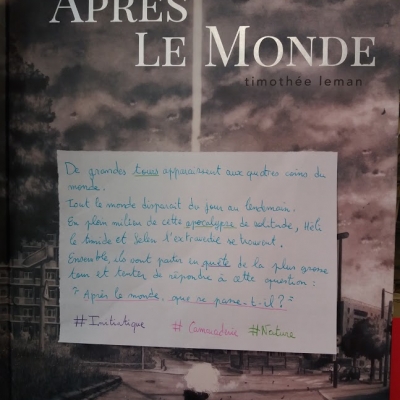 APRÈS
LE MONDE
timothée leman
De grandes tours apparaissent aux quatres coins du
monde.
Tout le monde disparait du jour au lendemain.
En plein milieu de cette apocalypse de solitude, Héli
le timide et Selen l'extravertie se trouvent.
Ensemble, ils vont partir en quête de la plus grosse
tour et tenter de répondre à cette question :
" Après le monde, que se passe-t-il ? "
#Initiatique # Camaraderie #Nature